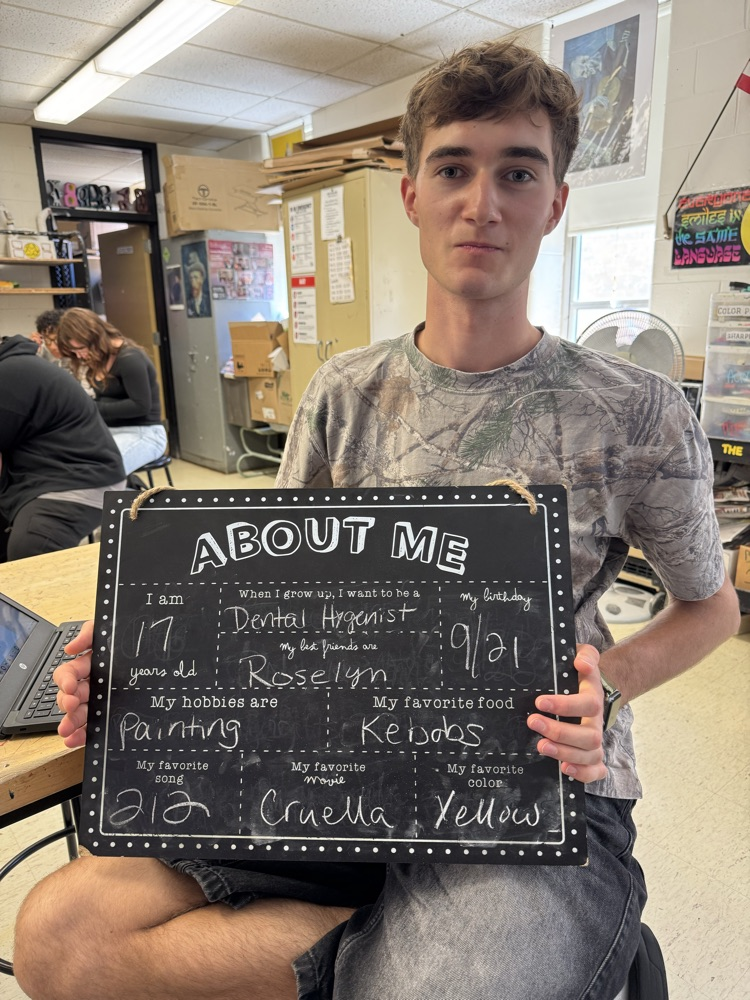 Everyone
smiles in
the SAME
LANGUAGE
COLOR P
SHARPI
THE
ABOUT ME
I am
17
years old
When I grow up, I want to be a
Dental Hygenist
My best friends are
Roselyn
My birthday
9/21
My hobbies are
Painting
My favorite food
Kebobs
My favorite
song
212
My favorite
movie
Cruella
My favorite
color
Yellow